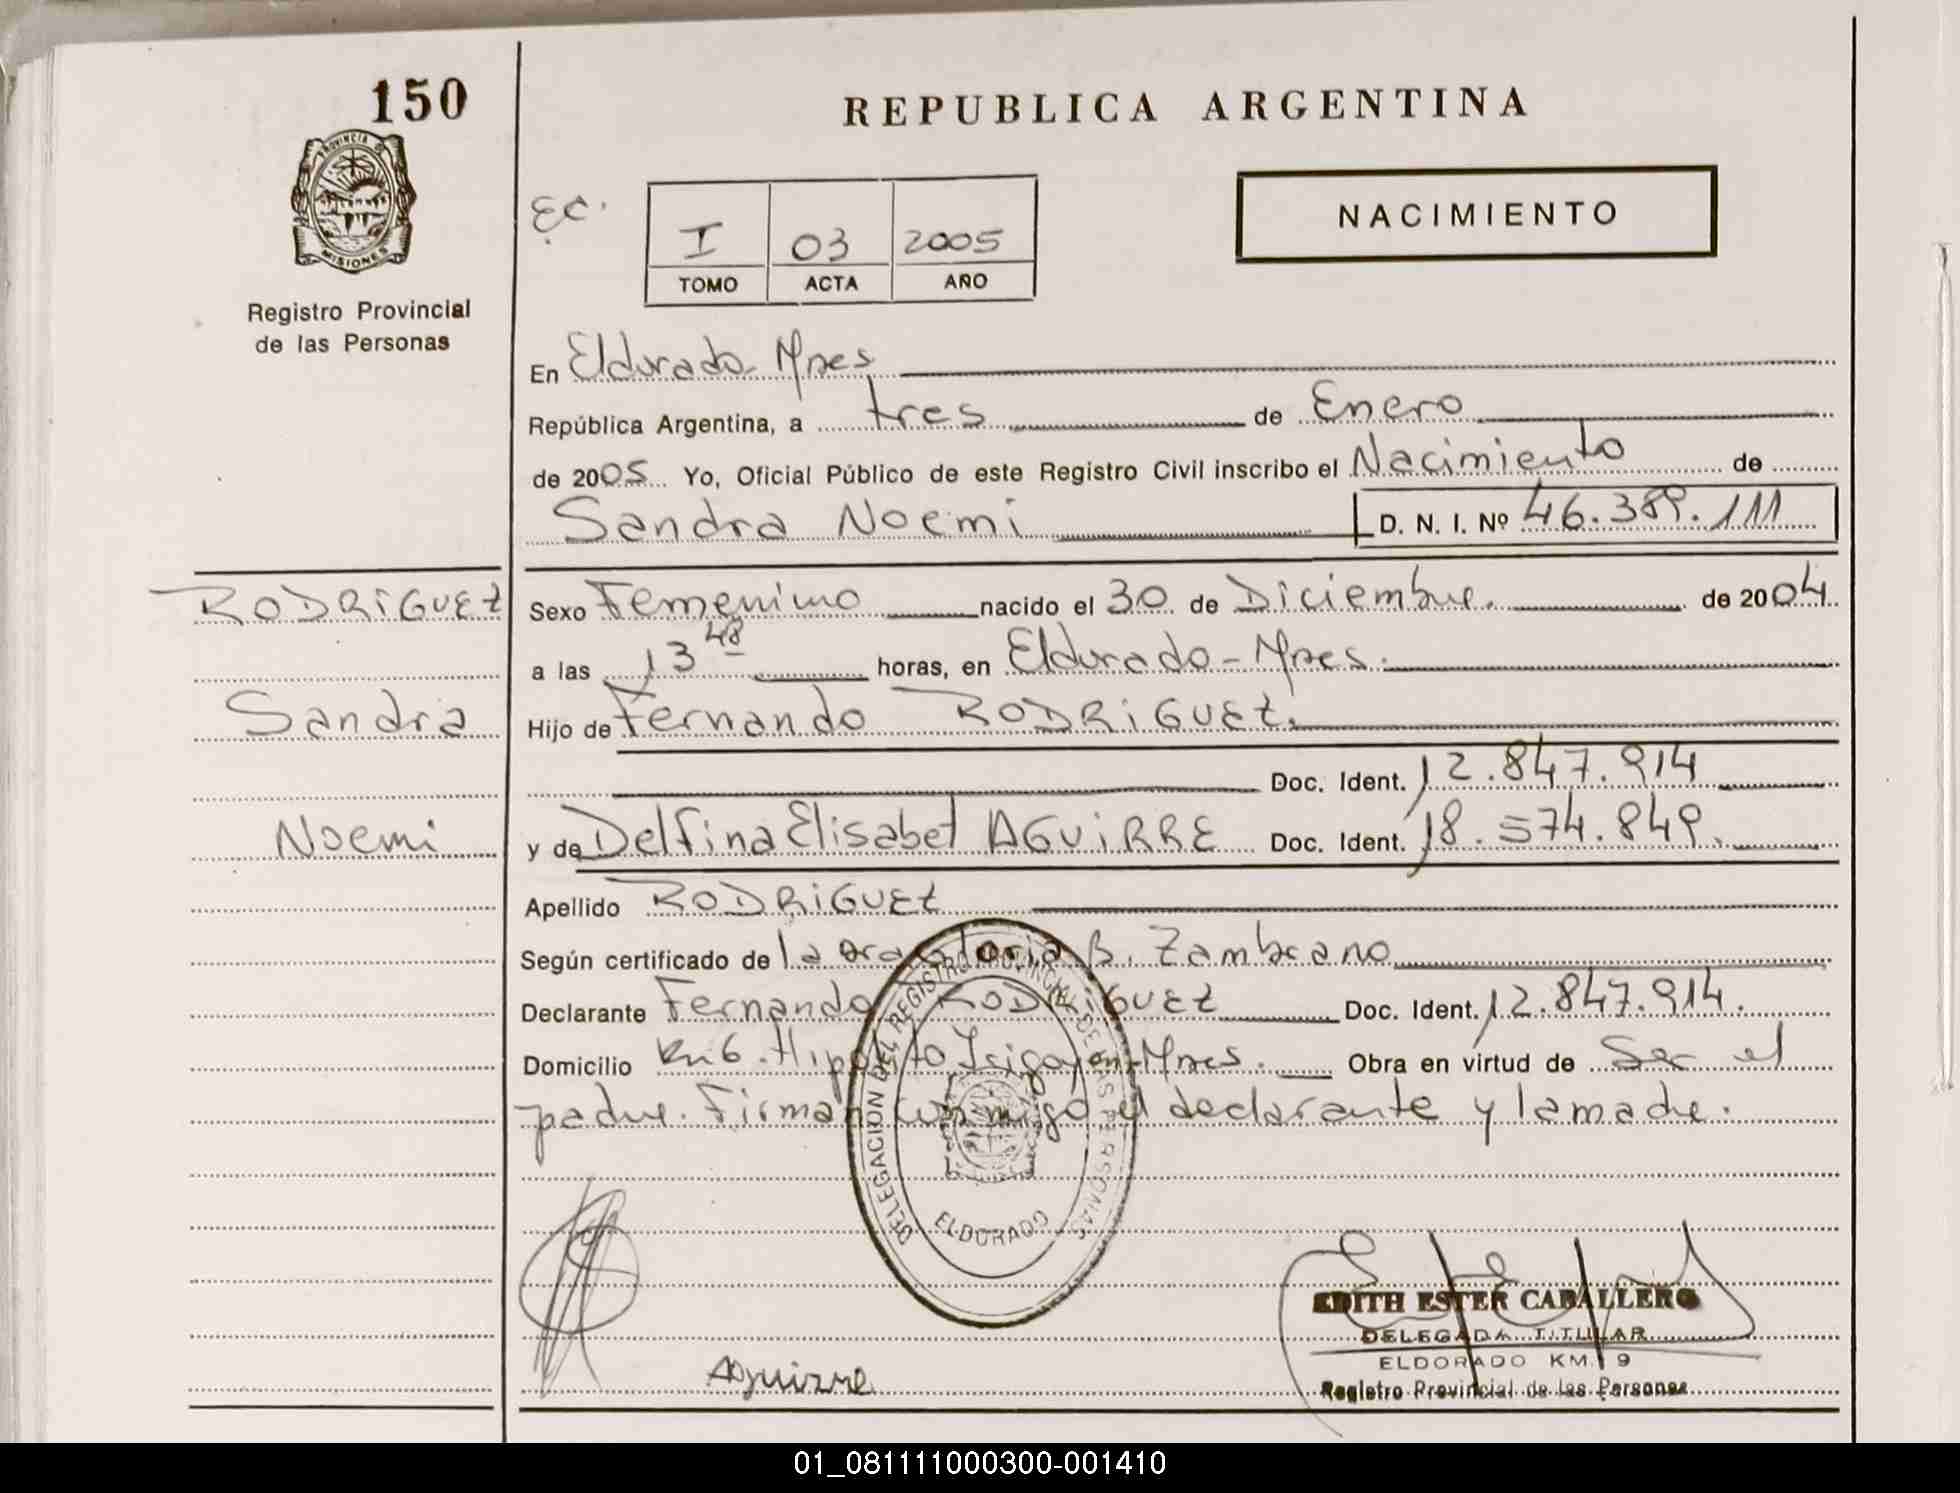 150
REPUBLICA ARGENTINA
PROVINCIA DE
MISIONES
Registro Provincial
de las Personas
EC.
I 03 2005
TOMO ACTA AÑO
NACIMIENTO
En Eldorado - Mnes
República Argentina, a tres de Enero
de 2005 Yo, Oficial Público de este Registro Civil inscribo el Nacimiento de
Sandra Noemi D. N. I. Nº 46.389.111
RODRIGUEZ
Sandra
Noemi
Sexo Femenino nacido el 30 de Diciembre. de 2004
a las 13 48 horas, en Eldorado - Mnes.
Hijo de Fernando RODRIGUEZ.
Doc. Ident. 12.847.914
y de Delfina Elisabet AGUIRRE Doc. Ident. 18.574.849.
Apellido RODRIGUEZ
Según certificado de la B. Zambrano
Declarante Fernando RODRIGUEZ Doc. Ident. 12.847.914.
Domicilio Km 6. Hipolito Irigoyen - Mnes. Obra en virtud de Ser el
padre. Firman conmigo el declarante y la madre.
DELEGACION DEL REGISTRO PROVINCIAL DE LAS PERSONAS
ELDORADO
Aguirre
EDITH ESTER CABALLERO
DELEGADA TITULAR
ELDORADO KM. 9
Registro Provincial de las Personas
01_081111000300-001410